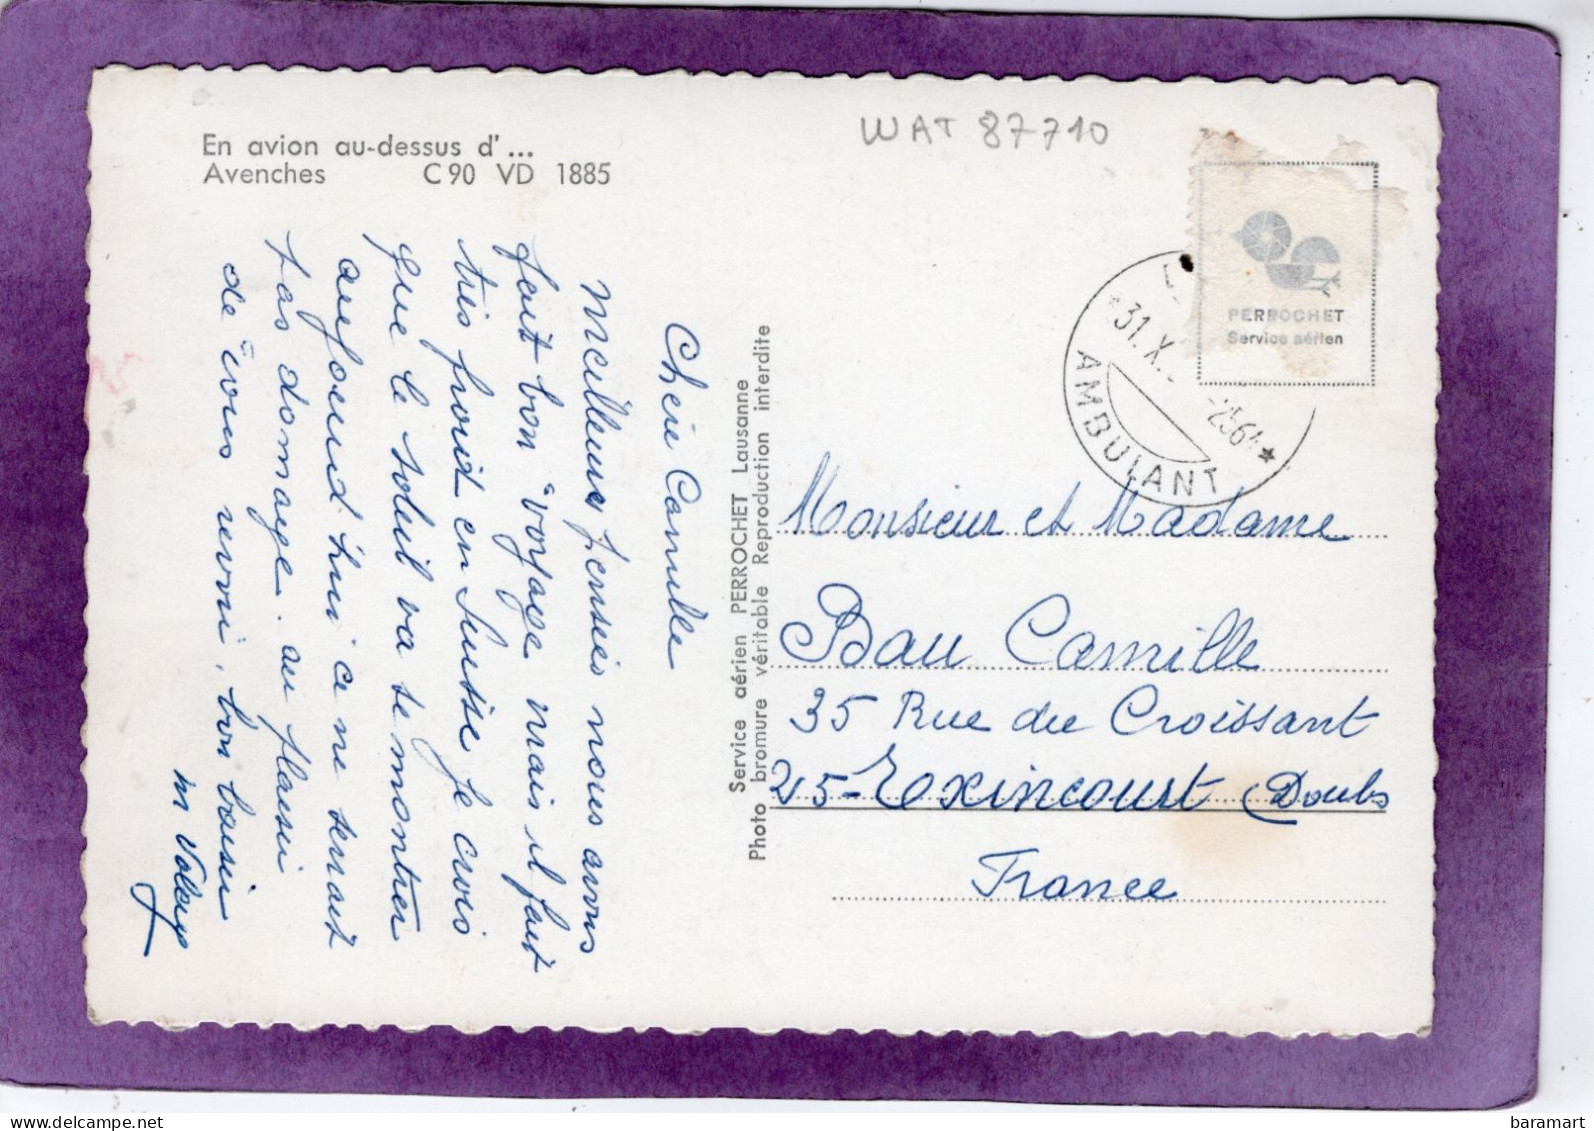 WAT 87710
En avion au-dessus d'...
Avenches C 90 VD 1885
PERROCHET
Service aérien
31. X.
-2564
AMBULANT
Chère Camille
Meilleures pensées nous avons
fait bon voyage mais il fait
très froid en Suisse je crois
que le soleil va se montrer
aujourd hui ce ne serait
pas domage. au plaisir
de vous revoir, bon baiser
Service aérien PERROCHET Lausanne
Photo bromure véritable Reproduction interdite
Monsieur et Madame
Bau Camille
35 Rue du Croissant
25-Exincourt (Doubs
France